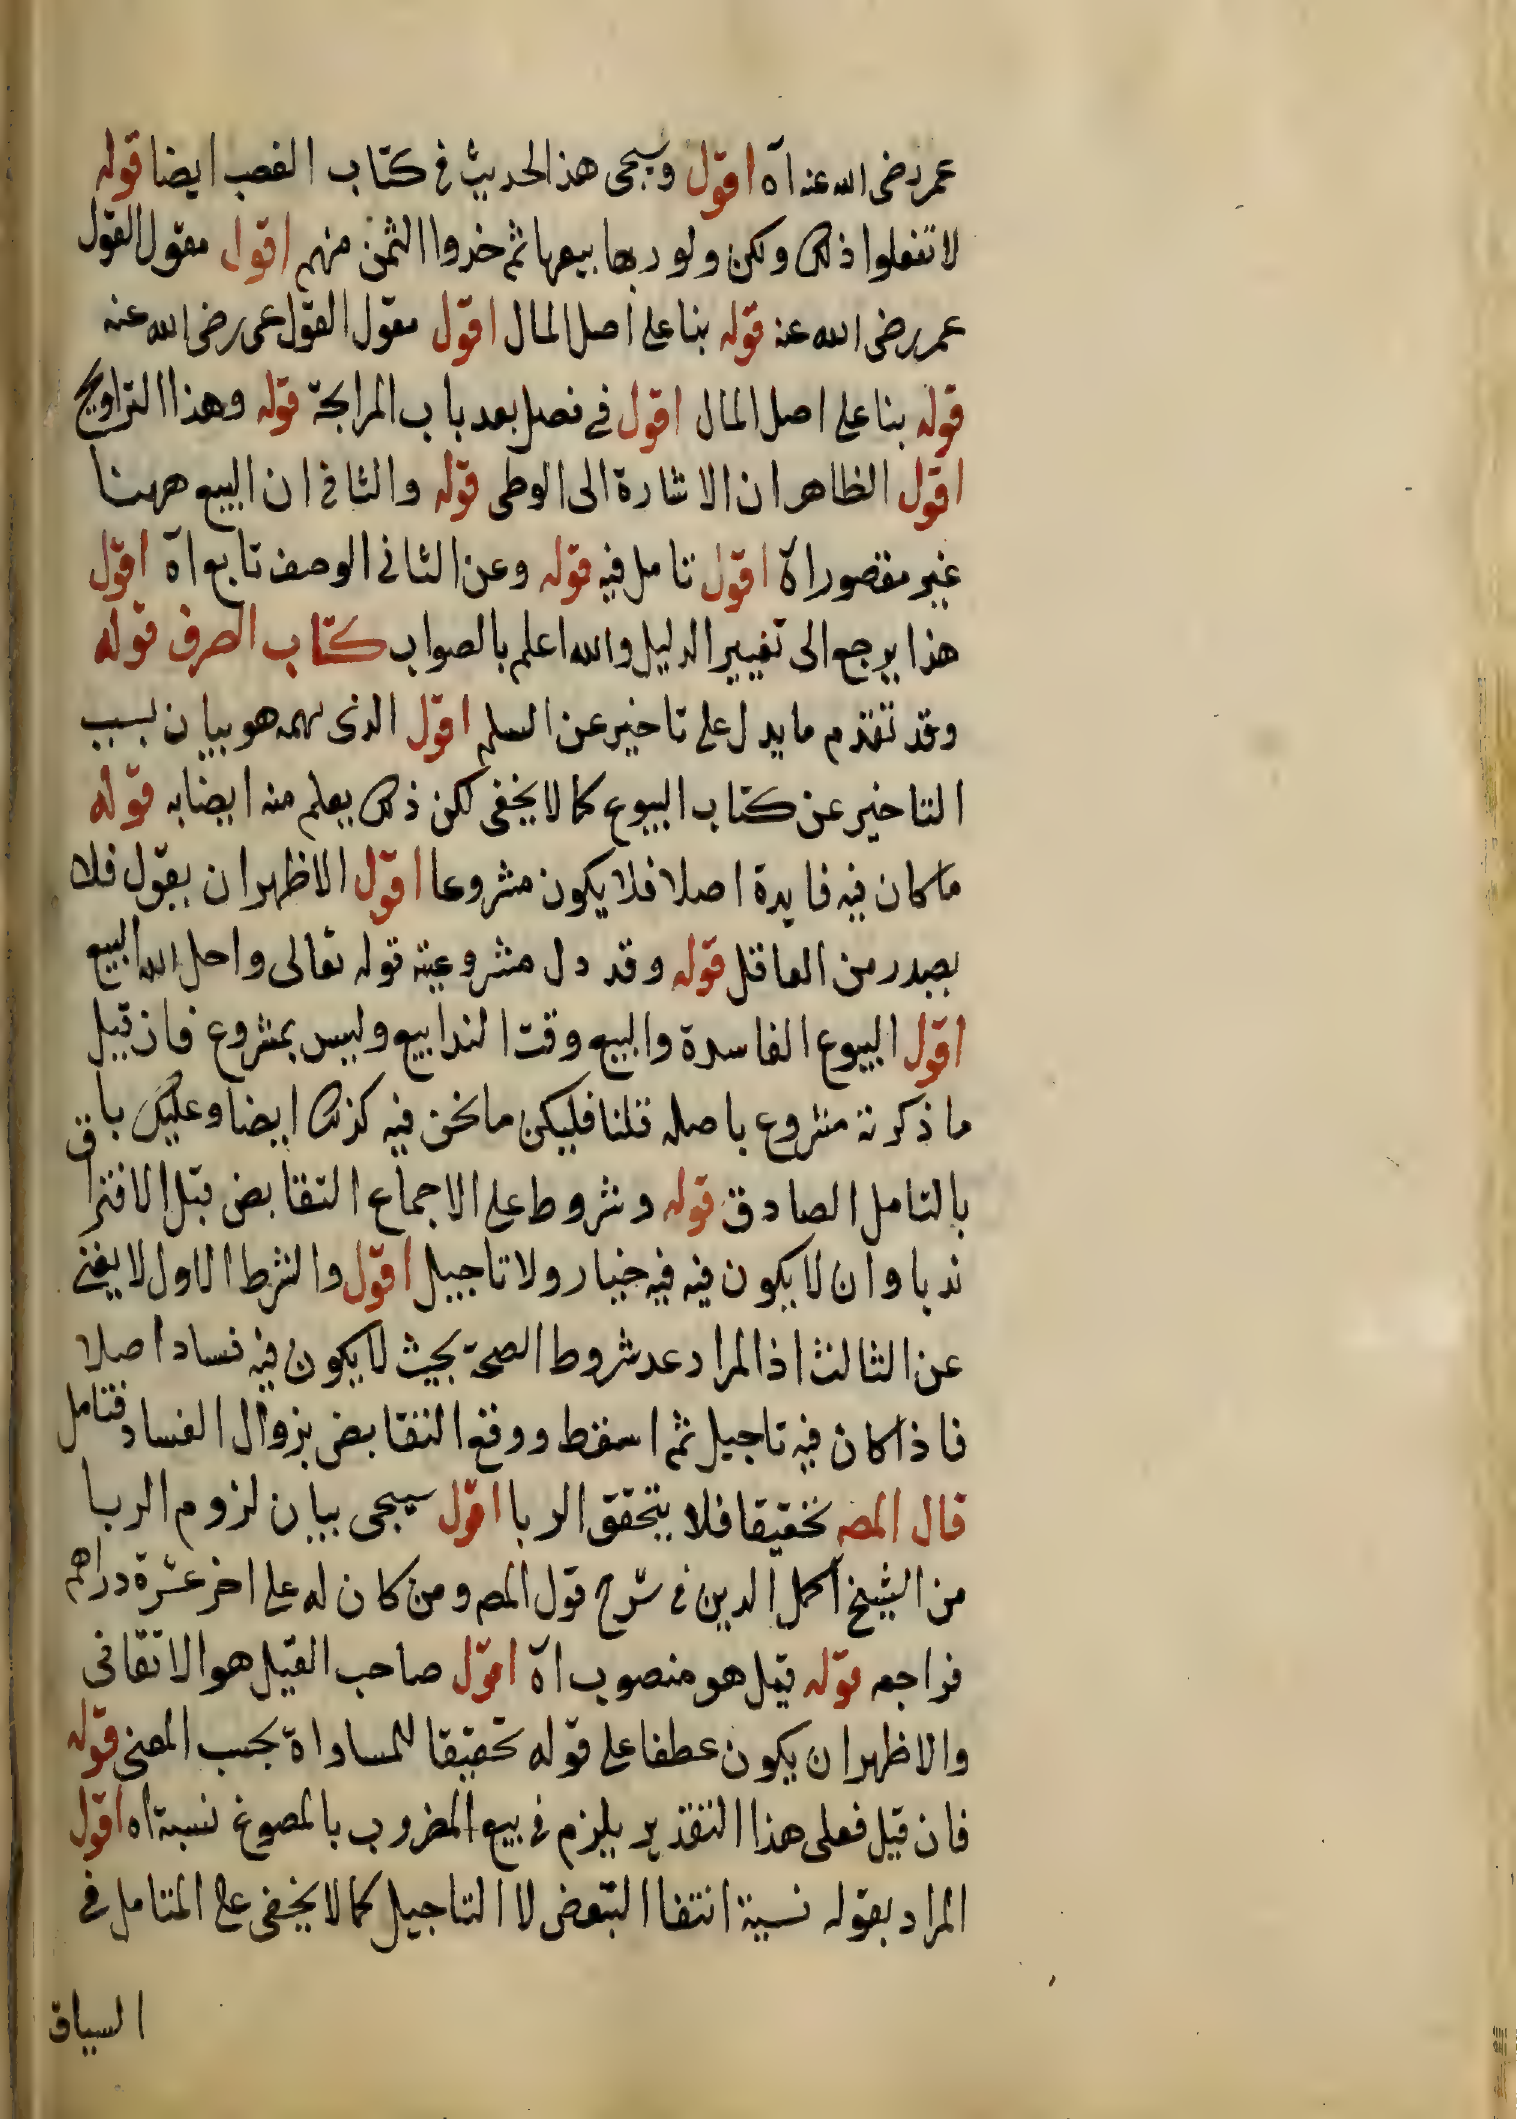 عمر رضى الله عنه اه اقول وسيجى هذا الحديث فى كتاب الغصب ايضا قوله
لا تفعلوا ذلك ولكن ولوا ربها بيعها ثم خذوا الثمن منهم اقول مقول القول
عمر رضى الله عنه قوله بنا على اصل المال اقول مقول القول عمر رضى الله عنه
قوله بنا على اصل المال اقول فى فصل بعد باب المرابحة قوله وهذا التراويح
اقول الظاهر ان الاشارة الى الوطى قوله والثانى ان البيع ههنا
غير مقصور اه اقول تامل فيه قوله وعن الثانى الوصف تابع اه اقول
هذا يرجع الى تغيير الدليل والله اعلم بالصواب كتاب الصرف قوله
وقد تقدم ما يدل على تاخير عن السلم اقول الذى يهمه هو بيان لسبب
التاخير عن كتاب البيوع كما لا يخفى لكن ذلك يعلم منه ايضا به قوله
ما كان فيه فايدة اصلا فلا يكون مشروعا اقول الاظهر ان يقول فلا
يصدر من العاقل قوله وقد دل مشروعيته قوله تعالى واحل الله البيع
اقول البيوع الفاسدة والبيع وقت الندا بيع وليس بمشروع فان قيل
ما ذكرته مشروع باصله قلنا فليكن ما نحن فيه كذلك ايضا وعليك باق
بالتامل الصادق قوله وشروط على الاجماع التقابض قبل الافترا
ند با وان لا يكون فيه فيه خيار ولا تاجيل اقول والشرط الاول لا يغنى
عن الثالث اذ المراد عد شروط الصحة بحيث لا يكون فيه فساد اصلا
فاذا كان فيه تاجيل ثم اسقط ووقع التقابض بزوال الفساد فتامل
قال المص تحقيقا فلا يتحقق الربا اقول سيجى بيان لزوم الربا
من الشيخ اكمل الدين فى شرح قول المص ومن كان له على اخر عشرة دراهم
فراجعه قوله قيل هو منصوب اه اقول صاحب القيل هو الاتقانى
والاظهر ان يكون عطفا على قوله تحقيقا للمساواة بحسب المعنى قوله
فان قيل فعلى هذا التقدير يلزم فى بيع المضروب بالمصوغ نسية اه اقول
المراد بقوله نسية انتفا القبض لا التاجيل كما لا يخفى على المتامل فى
السياق